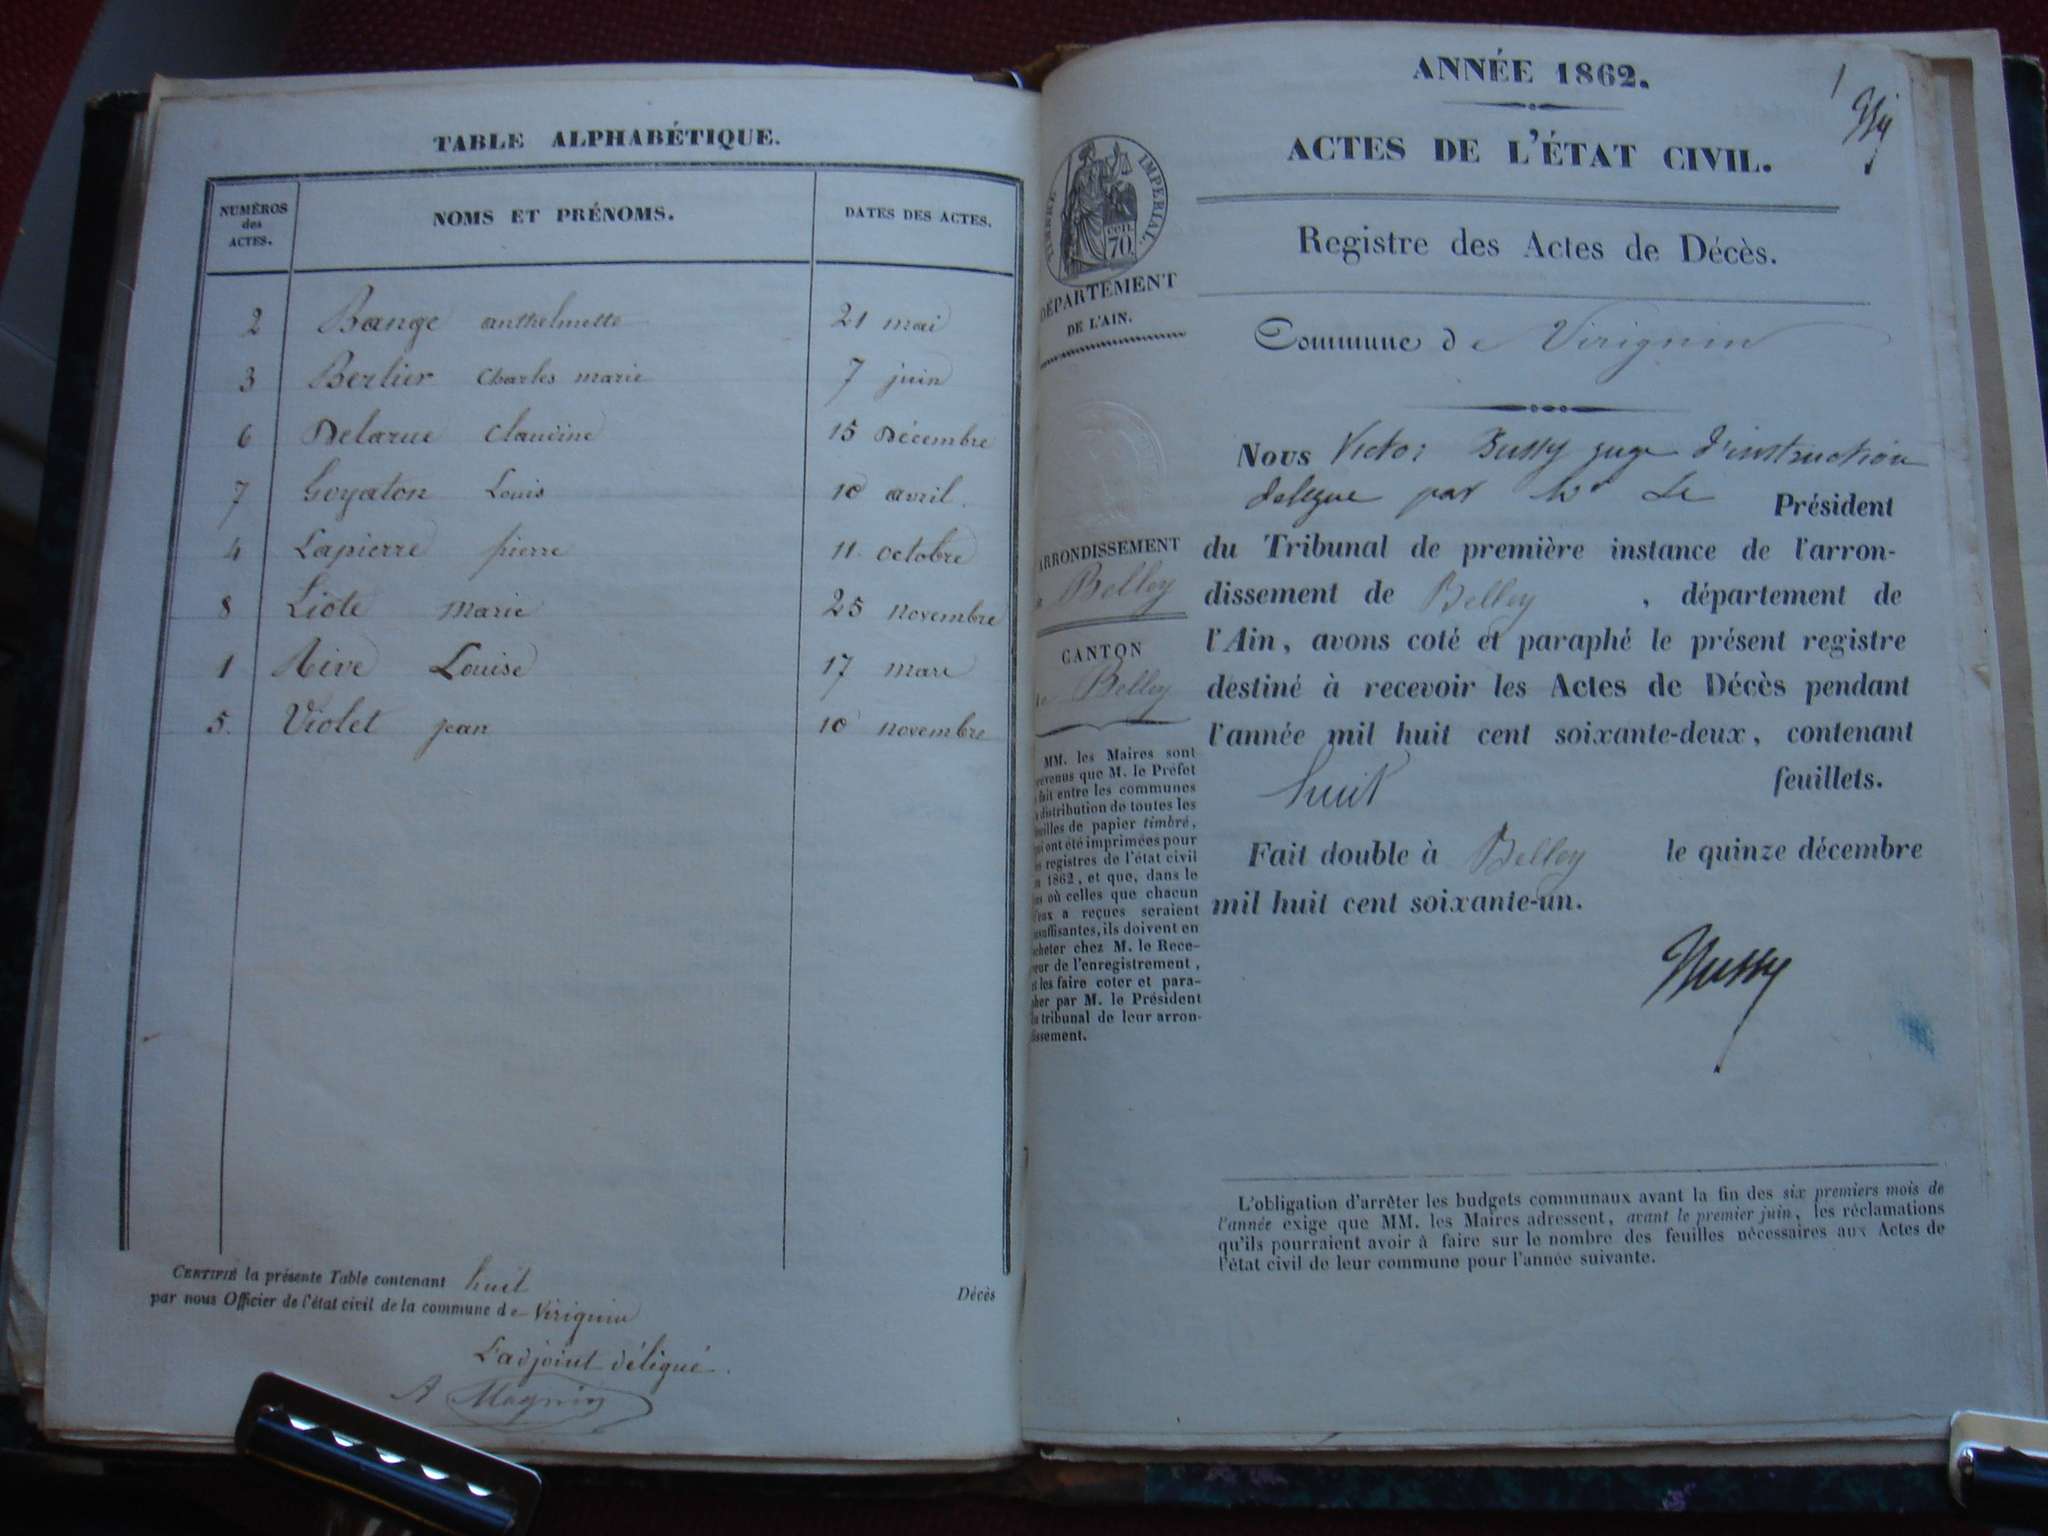 TABLE ALPHABÉTIQUE.
NUMÉROS
des
ACTES.
NOMS ET PRÉNOMS.
DATES DES ACTES.
2 Bange anthelmette 21 mai
3 Berlier Charles marie 7 juin
6 Delarue Claudine 15 Décembre
7 Goyaton Louis 10 avril.
4 Lapierre pierre 11 octobre
8 Liote marie 25 novembre
1 Rive Louise 17 mars
5. Violet jean 10 novembre
CERTIFIÉ la présente Table contenant huit
par nous Officier de l'état civil de la commune de Virignin
Décès
L'adjoint délégué.
A Magnin
ANNÉE 1862.
1
ACTES DE L'ÉTAT CIVIL.
TIMBRE IMPÉRIAL.
CEN. 70
Registre des Actes de Décès.
DÉPARTEMENT
DE L'AIN.
Commune de Virignin
Nous Victor Bussy juge d'instruction
délégué par Mr Le Président
du Tribunal de première instance de l'arron-
dissement de Belley, département de
l'Ain, avons coté et paraphé le présent registre
destiné à recevoir les Actes de Décès pendant
l'année mil huit cent soixante-deux, contenant
huit feuillets.
Fait double à Belley le quinze décembre
mil huit cent soixante-un.
Bussy
ARRONDISSEMENT
Belley
CANTON
Belley
MM. les Maires sont
prévenus que M. le Préfet
a fait entre les communes
la distribution de toutes les
feuilles de papier timbré,
qui ont été imprimées pour
les registres de l'état civil
en 1862, et que, dans le
cas où celles que chacun
d'eux a reçues seraient
insuffisantes, ils doivent en
acheter chez M. le Rece-
veur de l'enregistrement,
et les faire coter et para-
pher par M. le Président
du tribunal de leur arron-
dissement.
L'obligation d'arrêter les budgets communaux avant la fin des six premiers mois de
l'année exige que MM. les Maires adressent, avant le premier juin, les réclamations
qu'ils pourraient avoir à faire sur le nombre des feuilles nécessaires aux Actes de
l'état civil de leur commune pour l'année suivante.